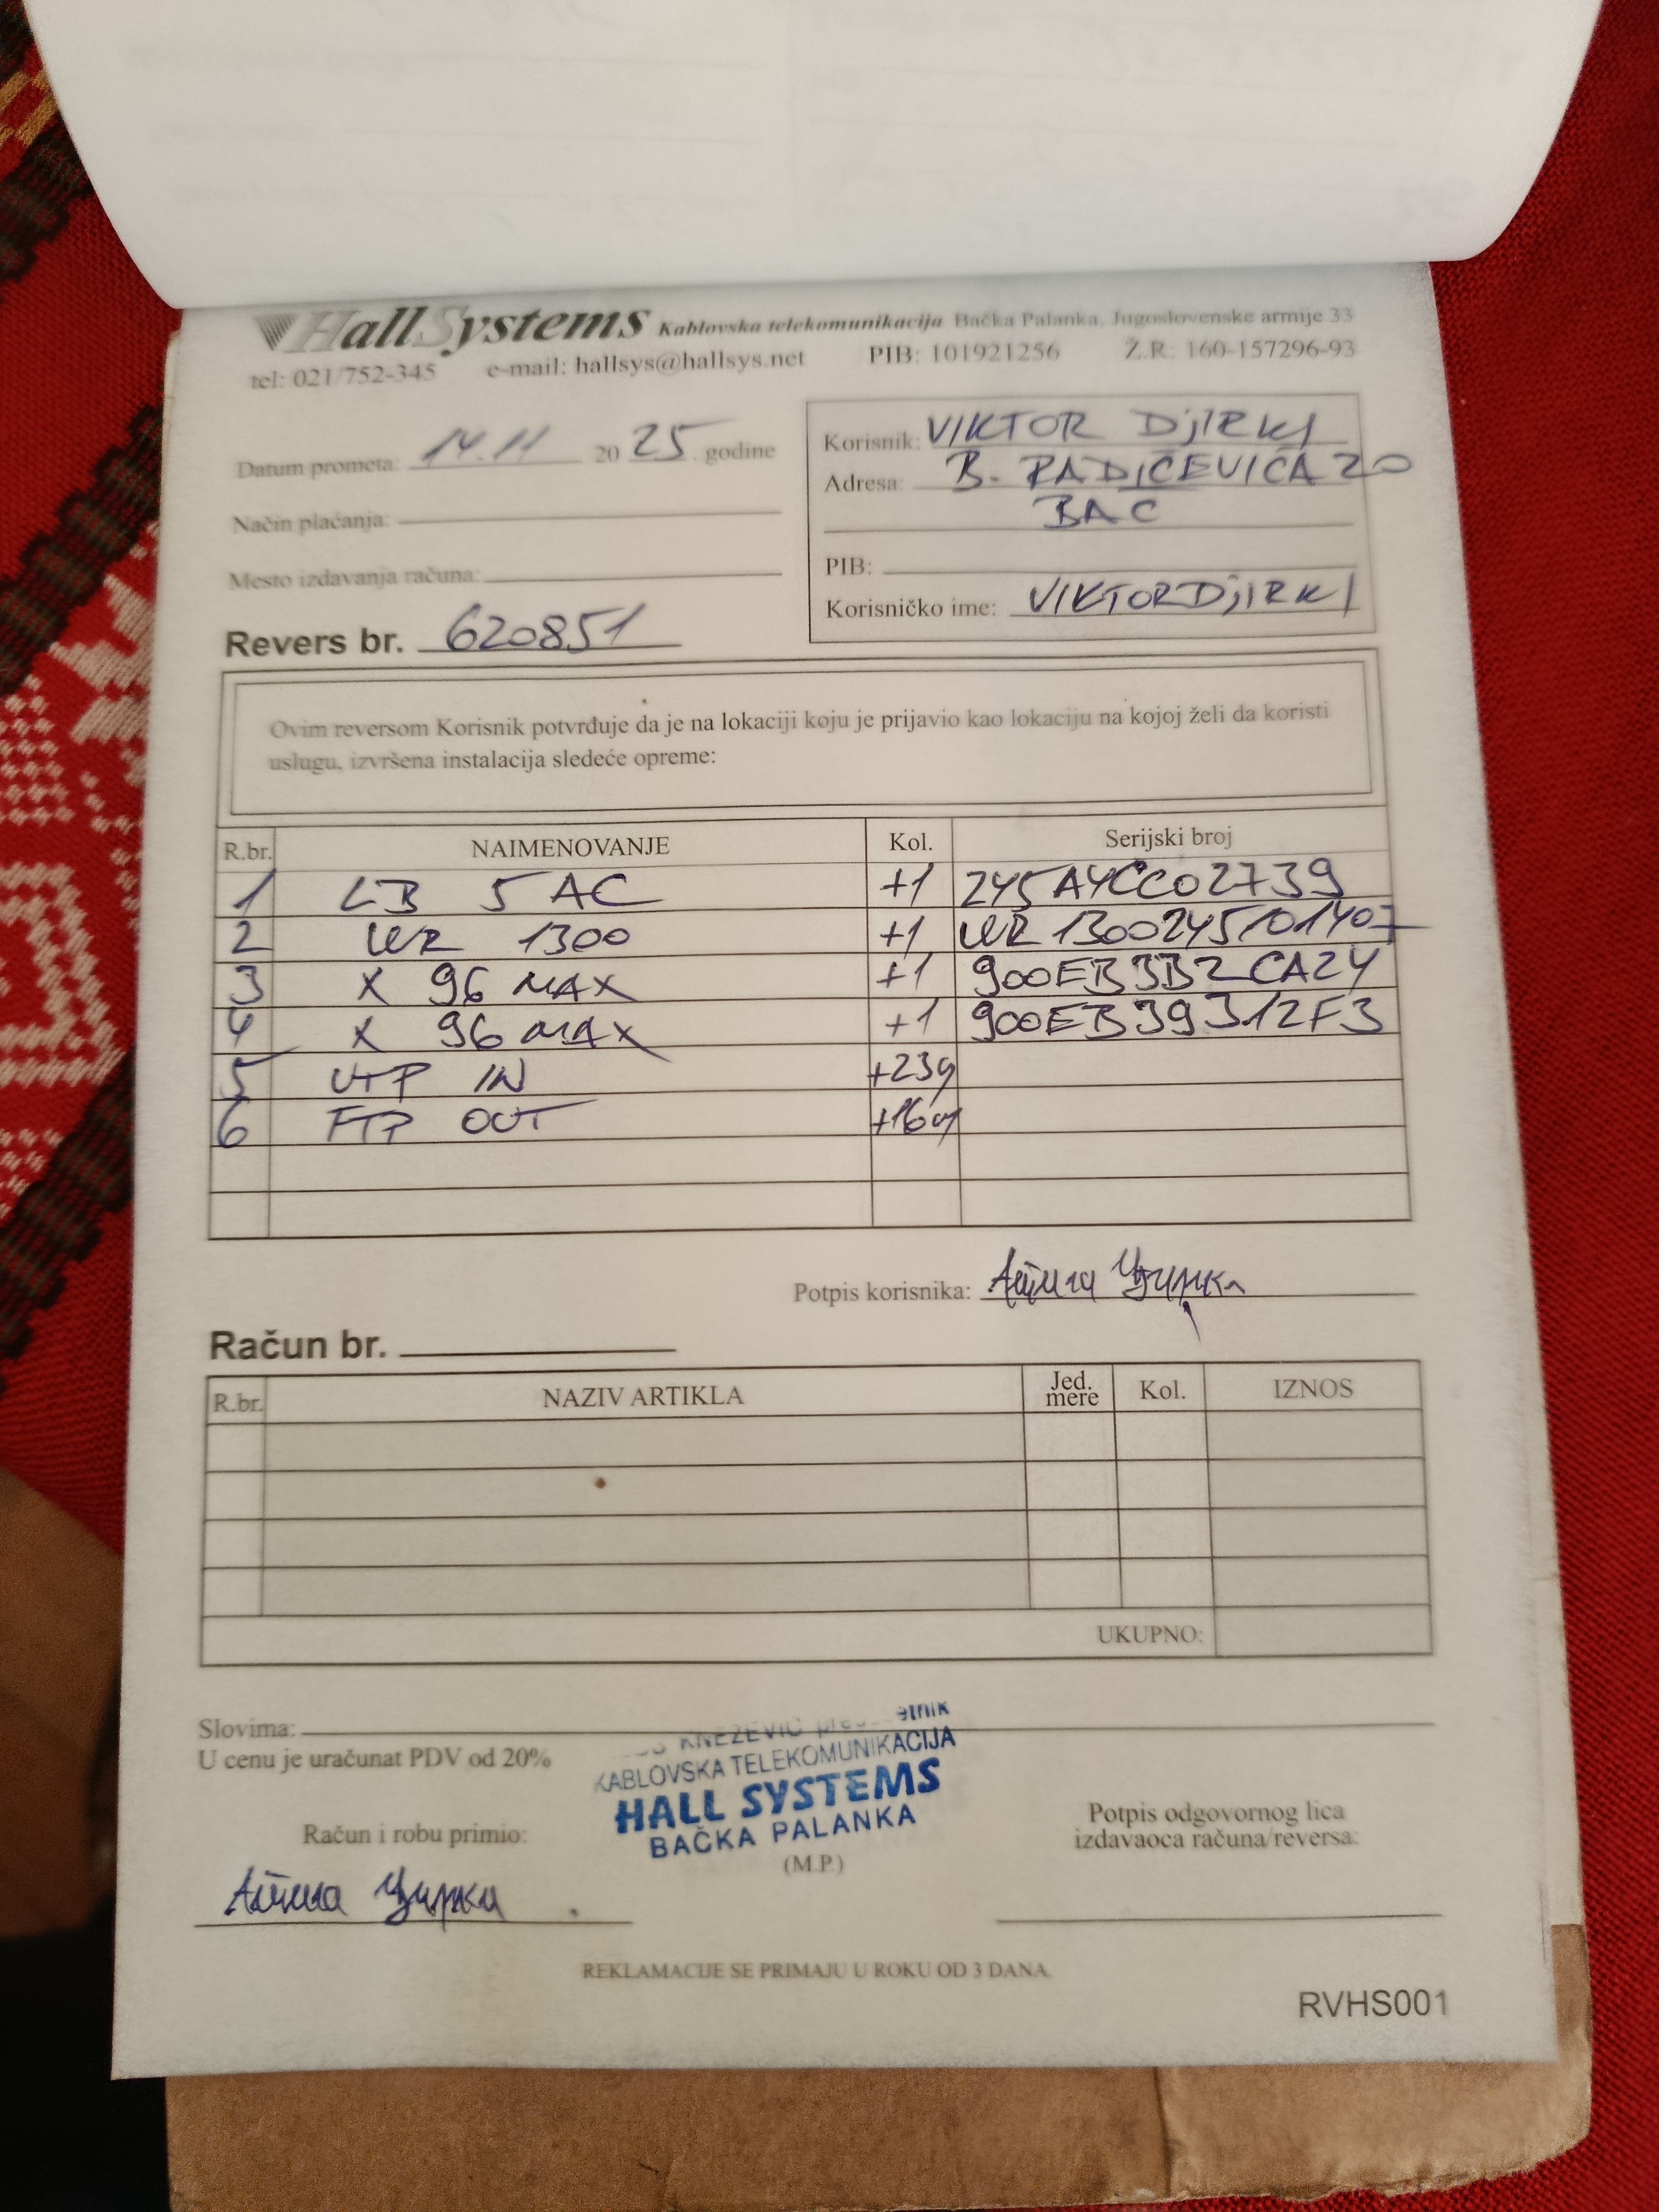 Hall Systems Kablovska telekomunikacija Bačka Palanka, Jugoslovenske armije 33
tel: 021/752-345 e-mail: hallsys@hallsys.net PIB: 101921256 Ž.R: 160-157296-93
Datum prometa: 14.11 2025. godine
Način plaćanja:
Mesto izdavanja računa:
Revers br. 620851
Korisnik: VIKTOR DjIRKI
Adresa: B. RADIČEVIĆA 20
BAC
PIB:
Korisničko ime: VIKTORDjIRKI
Ovim reversom Korisnik potvrđuje da je na lokaciji koju je prijavio kao lokaciju na kojoj želi da koristi
uslugu, izvršena instalacija sledeće opreme:
R.br. NAIMENOVANJE Kol. Serijski broj
1 LB 5 AC +1 245A4CC02739
2 WR 1300 +1 WR1300245101407
3 X 96 MAX +1 900EB3B2CA24
4 X 96 MAX +1 900EB39312F3
5 UTP IN
6 FTP OUT
Potpis korisnika:
Račun br.
R.br. NAZIV ARTIKLA Jed. mere Kol. IZNOS
UKUPNO:
Slovima:
U cenu je uračunat PDV od 20%
KNEZEVIĆ
KABLOVSKA TELEKOMUNIKACIJA
HALL SYSTEMS
BAČKA PALANKA
(M.P.)
Račun i robu primio:
Potpis odgovornog lica
izdavaoca računa/reversa:
REKLAMACIJE SE PRIMAJU U ROKU OD 3 DANA
RVHS001